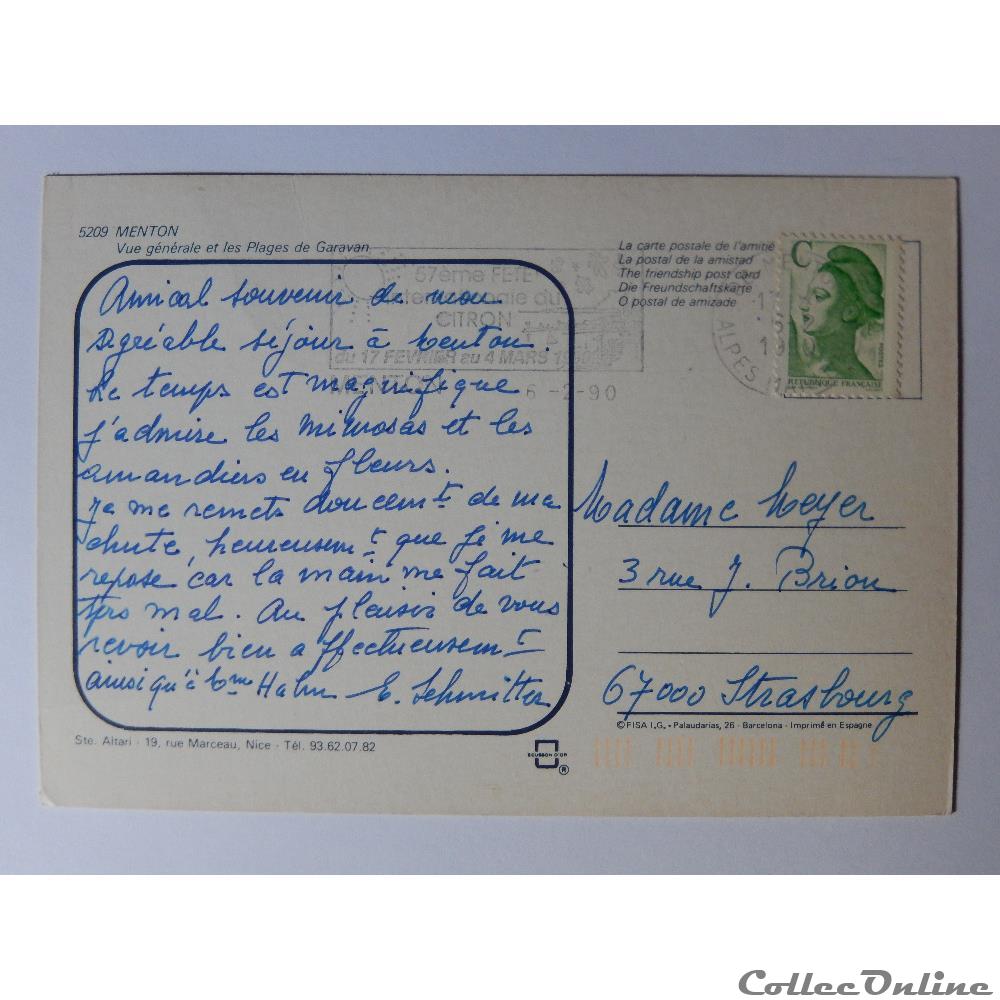 5209 MENTON
Vue générale et les Plages de Garavan
57ème FETE
du
CITRON
du 17 FEVRIER au 4 MARS
MENTON
6 -2-90
La carte postale de l'amitié
La postal de la amistad
The friendship post card
Die Freundschaftskarte
O postal de amizade
C
REPUBLIQUE FRANÇAISE
ALPES
Amical souvenir de mon
agréable séjour à Menton.
Le temps est magnifique
j'admire les mimosas et les
amandiers en fleurs.
Je me remets doucemt de ma
chute, heureusemt que je me
repose, car la main me fait
très mal. Au plaisir de vous
revoir bien affectueusemt
ainsi qu'à Mme Hahn E. Schmitter
Madame Meyer
3 rue J. Brion
67000 Strasbourg
© FISA I.G. - Palaudarias, 26 - Barcelona - Imprimé en Espagne
Ste. Altari - 19, rue Marceau, Nice - Tél. 93.62.07.82
ECUSSON D'OR
®
CollecOnline